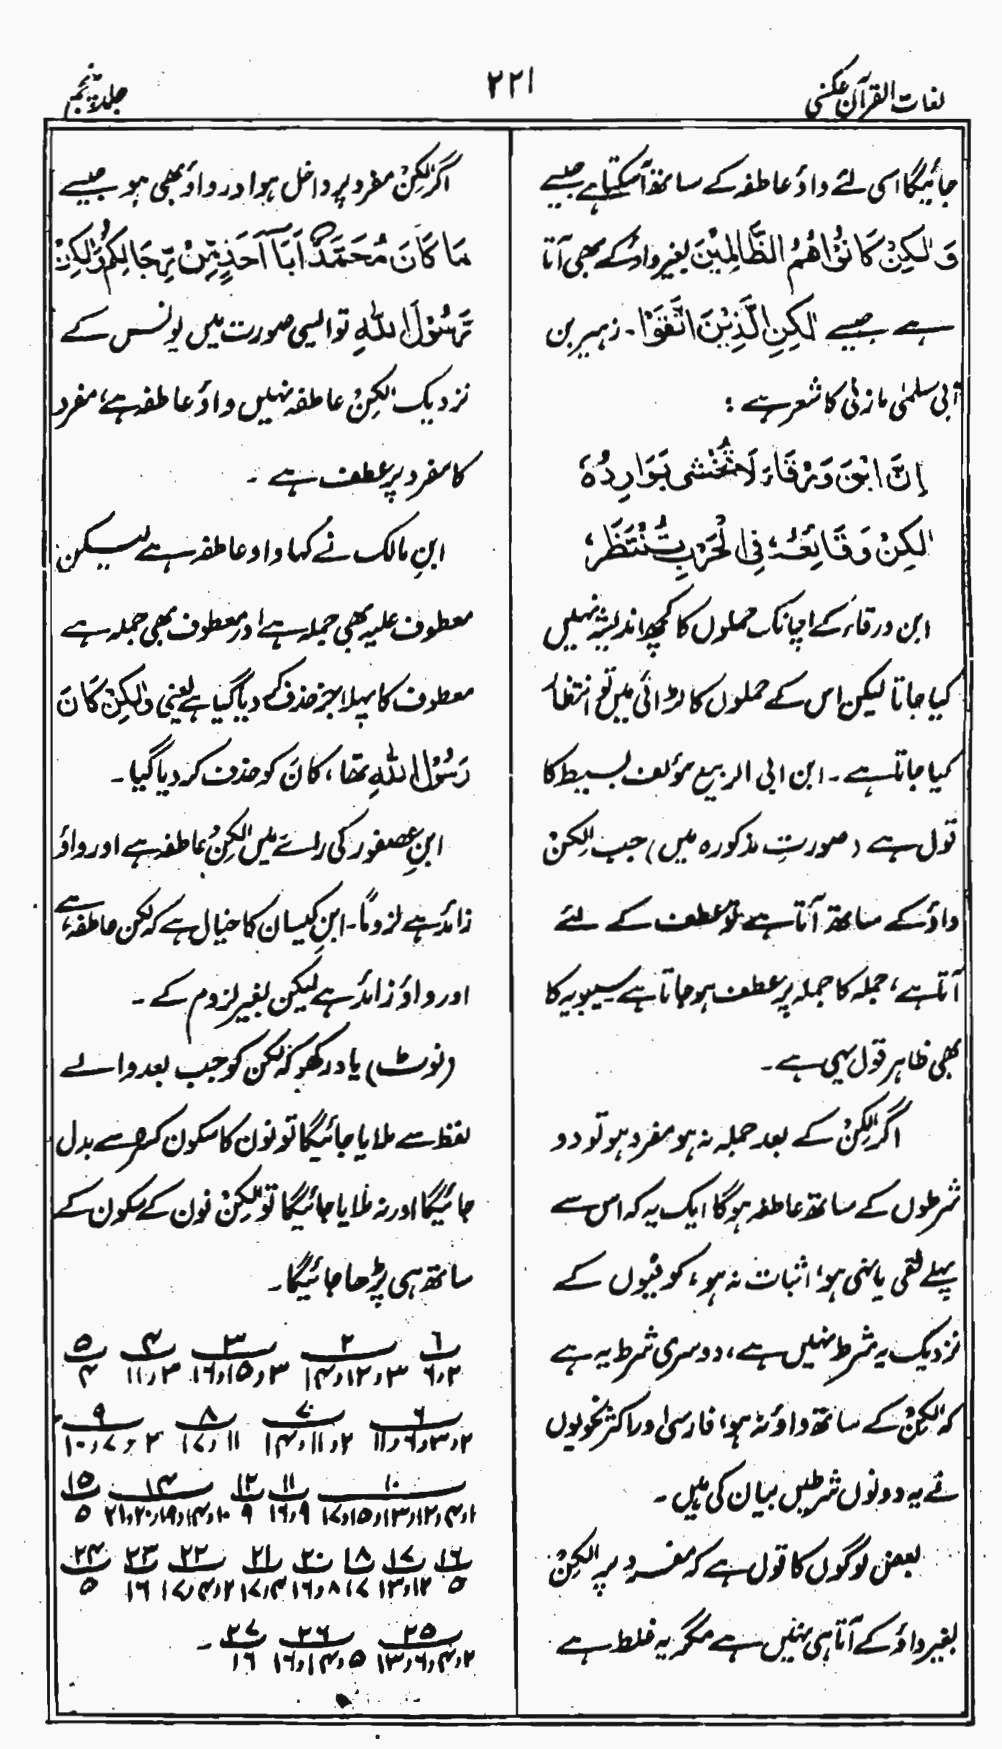 لغات القرآن عکسی
۲۲۱
جلد پنجم
جائیگا اسی لئے واؤ عاطفہ کے ساتھ آسکتا ہے جیسے
وَلٰكِنْ كَانُوْا هُمُ الظَّالِمِيْنَ بغیر واؤ کے بھی آتا
ہے جیسے لٰكِنِ الَّذِيْنَ اتَّقَوْا ۔ زہیر بن
ابی سلمٰی مازنی کا شعر ہے :
اِنَّ ابْنَ وَرْقَاءَ لَا تُخْشٰى بَوَادِرُهٗ
لٰكِنْ وَقَائِعُهٗ فِى الْحَرْبِ تُنْتَظَرُ
ابن ورقاء کے اچانک حملوں کا کچھ اندیشہ نہیں
کیا جاتا لیکن اس کے حملوں کا لڑائی میں تو انتظار
کیا جاتا ہے ۔ ابن ابی الربیع مؤلف بسیط کا
قول ہے (صورتِ مذکورہ میں) جب لٰکِنْ
واؤ کے ساتھ آتا ہے تو عطف کے لئے
آتا ہے، جملہ کا جملہ پر عطف ہو جاتا ہے سیبویہ کا
بھی ظاہر قول یہی ہے ۔
اگر لٰکِنْ کے بعد جملہ نہ ہو مفرد ہو تو دو
شرطوں کے ساتھ عاطفہ ہو گا ایک یہ کہ اس سے
پہلے نفی یا نہی ہو، اثبات نہ ہو، کوفیوں کے
نزدیک یہ شرط نہیں ہے، دوسری شرط یہ ہے
کہ لٰکِنْ کے ساتھ واؤ نہ ہو، فارسی اور اکثر نحویوں
نے یہ دونوں شرطیں بیان کی ہیں ۔
بعض لوگوں کا قول ہے کہ مفرد پر لٰکِنْ
بغیر واؤ کے آتا ہی نہیں ہے مگر یہ غلط ہے
اگر لٰکِنْ مفرد پر داخل ہو اور واؤ بھی ہو جیسے
مَا كَانَ مُحَمَّدٌ اَبَا اَحَدٍ مِّنْ رِّجَالِكُمْ وَلٰكِنْ
رَّسُوْلَ اللّٰهِ تو ایسی صورت میں یونس کے
نزدیک لٰکِنْ عاطفہ نہیں واؤ عاطفہ ہے، مفرد
کا مفرد پر عطف ہے ۔
ابنِ مالک نے کہا واو عاطفہ ہے لیکن
معطوف علیہ بھی جملہ ہے اور معطوف بھی جملہ ہے
معطوف کا پہلا جز حذف کر دیا گیا ہے یعنی وَلٰكِنْ كَانَ
رَسُوْلَ اللّٰهِ تھا، كَانَ کو حذف کر دیا گیا ۔
ابنِ عصفور کی رائے میں لٰکِنْ عاطفہ ہے اور واؤ
زائد ہے لزوماً ۔ ابنِ کیسان کا خیال ہے کہ لکن عاطفہ ہے
اور واؤ زائد ہے لیکن بغیر لزوم کے ۔
(نوٹ) یاد رکھو کہ لکن کو جب بعد والے
لفظ سے ملایا جائیگا تو نون کا سکون کسرہ سے بدل
جائیگا اور نہ ملایا جائیگا تو لٰکِنْ نون کے سکون کے
ساتھ ہی پڑھا جائیگا ۔
۶ ۲ ۳ ۴ ۵
۶،۲ ۱۴،۱۲،۳ ۱۶،۱۵،۳ ۱۱،۳ ۴
۶ ۷ ۸ ۹
۱۱،۶،۳،۲ ۱۴،۱۱،۲ ۱۷،۱۱ ۱۰،۷،۲
۱۰ ۱۱ ۱۲ ۱۴ ۱۵
۱۶،۹ ۹ ۵
۱۶ ۱۷ ۱۸ ۲۰ ۲۱ ۲۲ ۲۳ ۲۴
۵ ۱۳،۱۲ ۱۷ ۱۶،۸ ۱۷،۴ ۱۷،۴،۲ ۱۶ ۵
۲۵ ۲۶ ۲۷
۱۳،۶،۴،۲ ۱۶،۱۴،۵ ۱۶ ۔